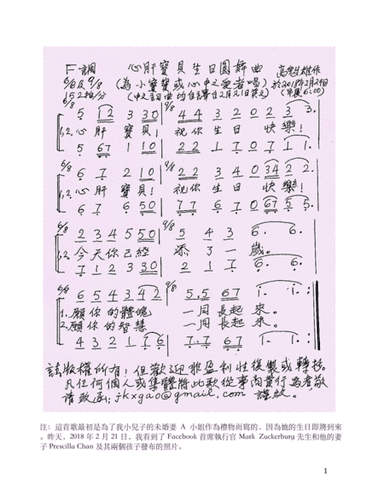 F調 心肝寶貝生日圓舞曲
6/8及9/8 (為小寶寶或心中之愛者唱)
152拍/分
6/8 9/8
5 1 2 3 30 4 4 3 2 0 2 3 3.
1,2. 心肝 寶貝! 祝你生日 快樂!
5 67 1 10 2 2 1 7 0 7 1 1.
6/8 9/8
6 7 2 1 10 2 2 3 4 0 34 2 2.
1,2. 心肝 寶貝! 祝你生日 快樂!
6 7 6 50 7 7 6 7 0 67 5 5.
6/8 9/8
2 3 4 5 50 5 4 3 6. 6.
1,2. 今天你已經 添了一歲。
7 1 2 3 30 2 1 7 6. 6.
6/8 9/8
6 5 4 3 4 2 5.5 67 1. 1.
1. 願你的體魄 一同長起來。
2. 願你的智慧 一同長起來。
4 3 2 1 7 6 7 7 6 7 1. 1.
註:版權所有;但歡迎非盈利性複製或轉抄。
凡任何個人或集體將此歌從事商業行為者敬
請致函: jkxgao@gmail.com 議版。
注:這首歌最初是為了我小兒子的未婚妻 A 小姐作為禮物而寫的、因為她的生日即將到來
。昨天、2018 年 2 月 21 日、我看到了 Facebook 首席執行官 Mark Zuckerburg 先生和他的妻
子 Prescilla Chan 及其兩個孩子發布的照片。
1